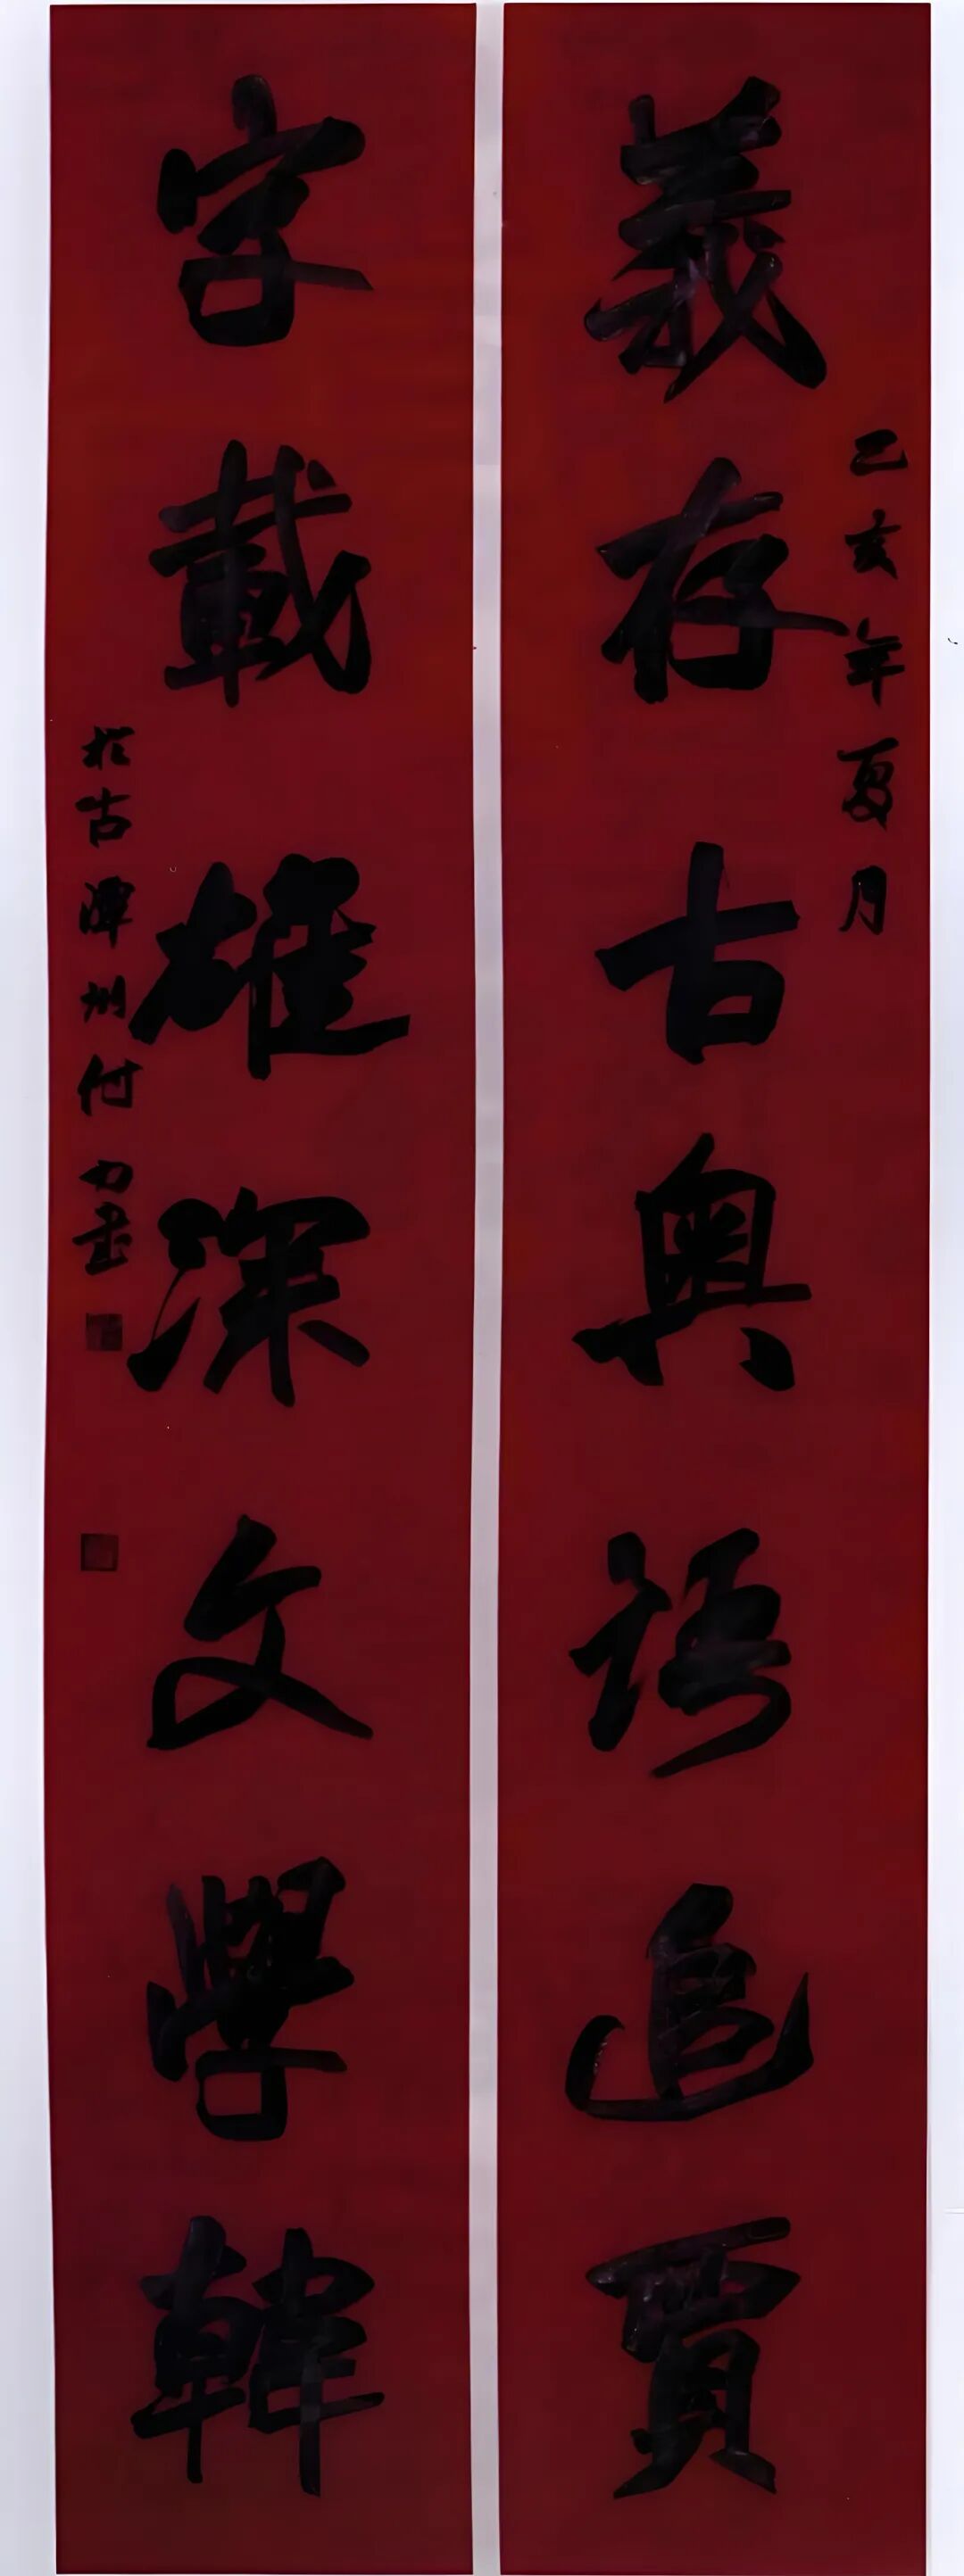 義存古奧語追賈
乙亥年夏月
字載雄深文學韓
於古潭州付力書